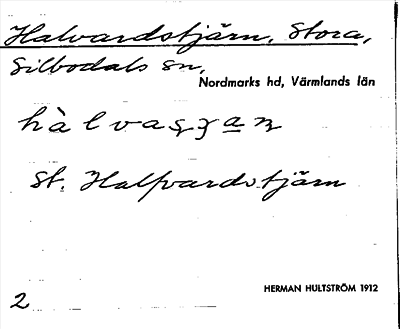 Halvardstjärn, Stora,
Silbodals sn,
Nordmarks hd, Värmlands län
St. Halfvardstjärn
HERMAN HULTSTRÖM 1912
2